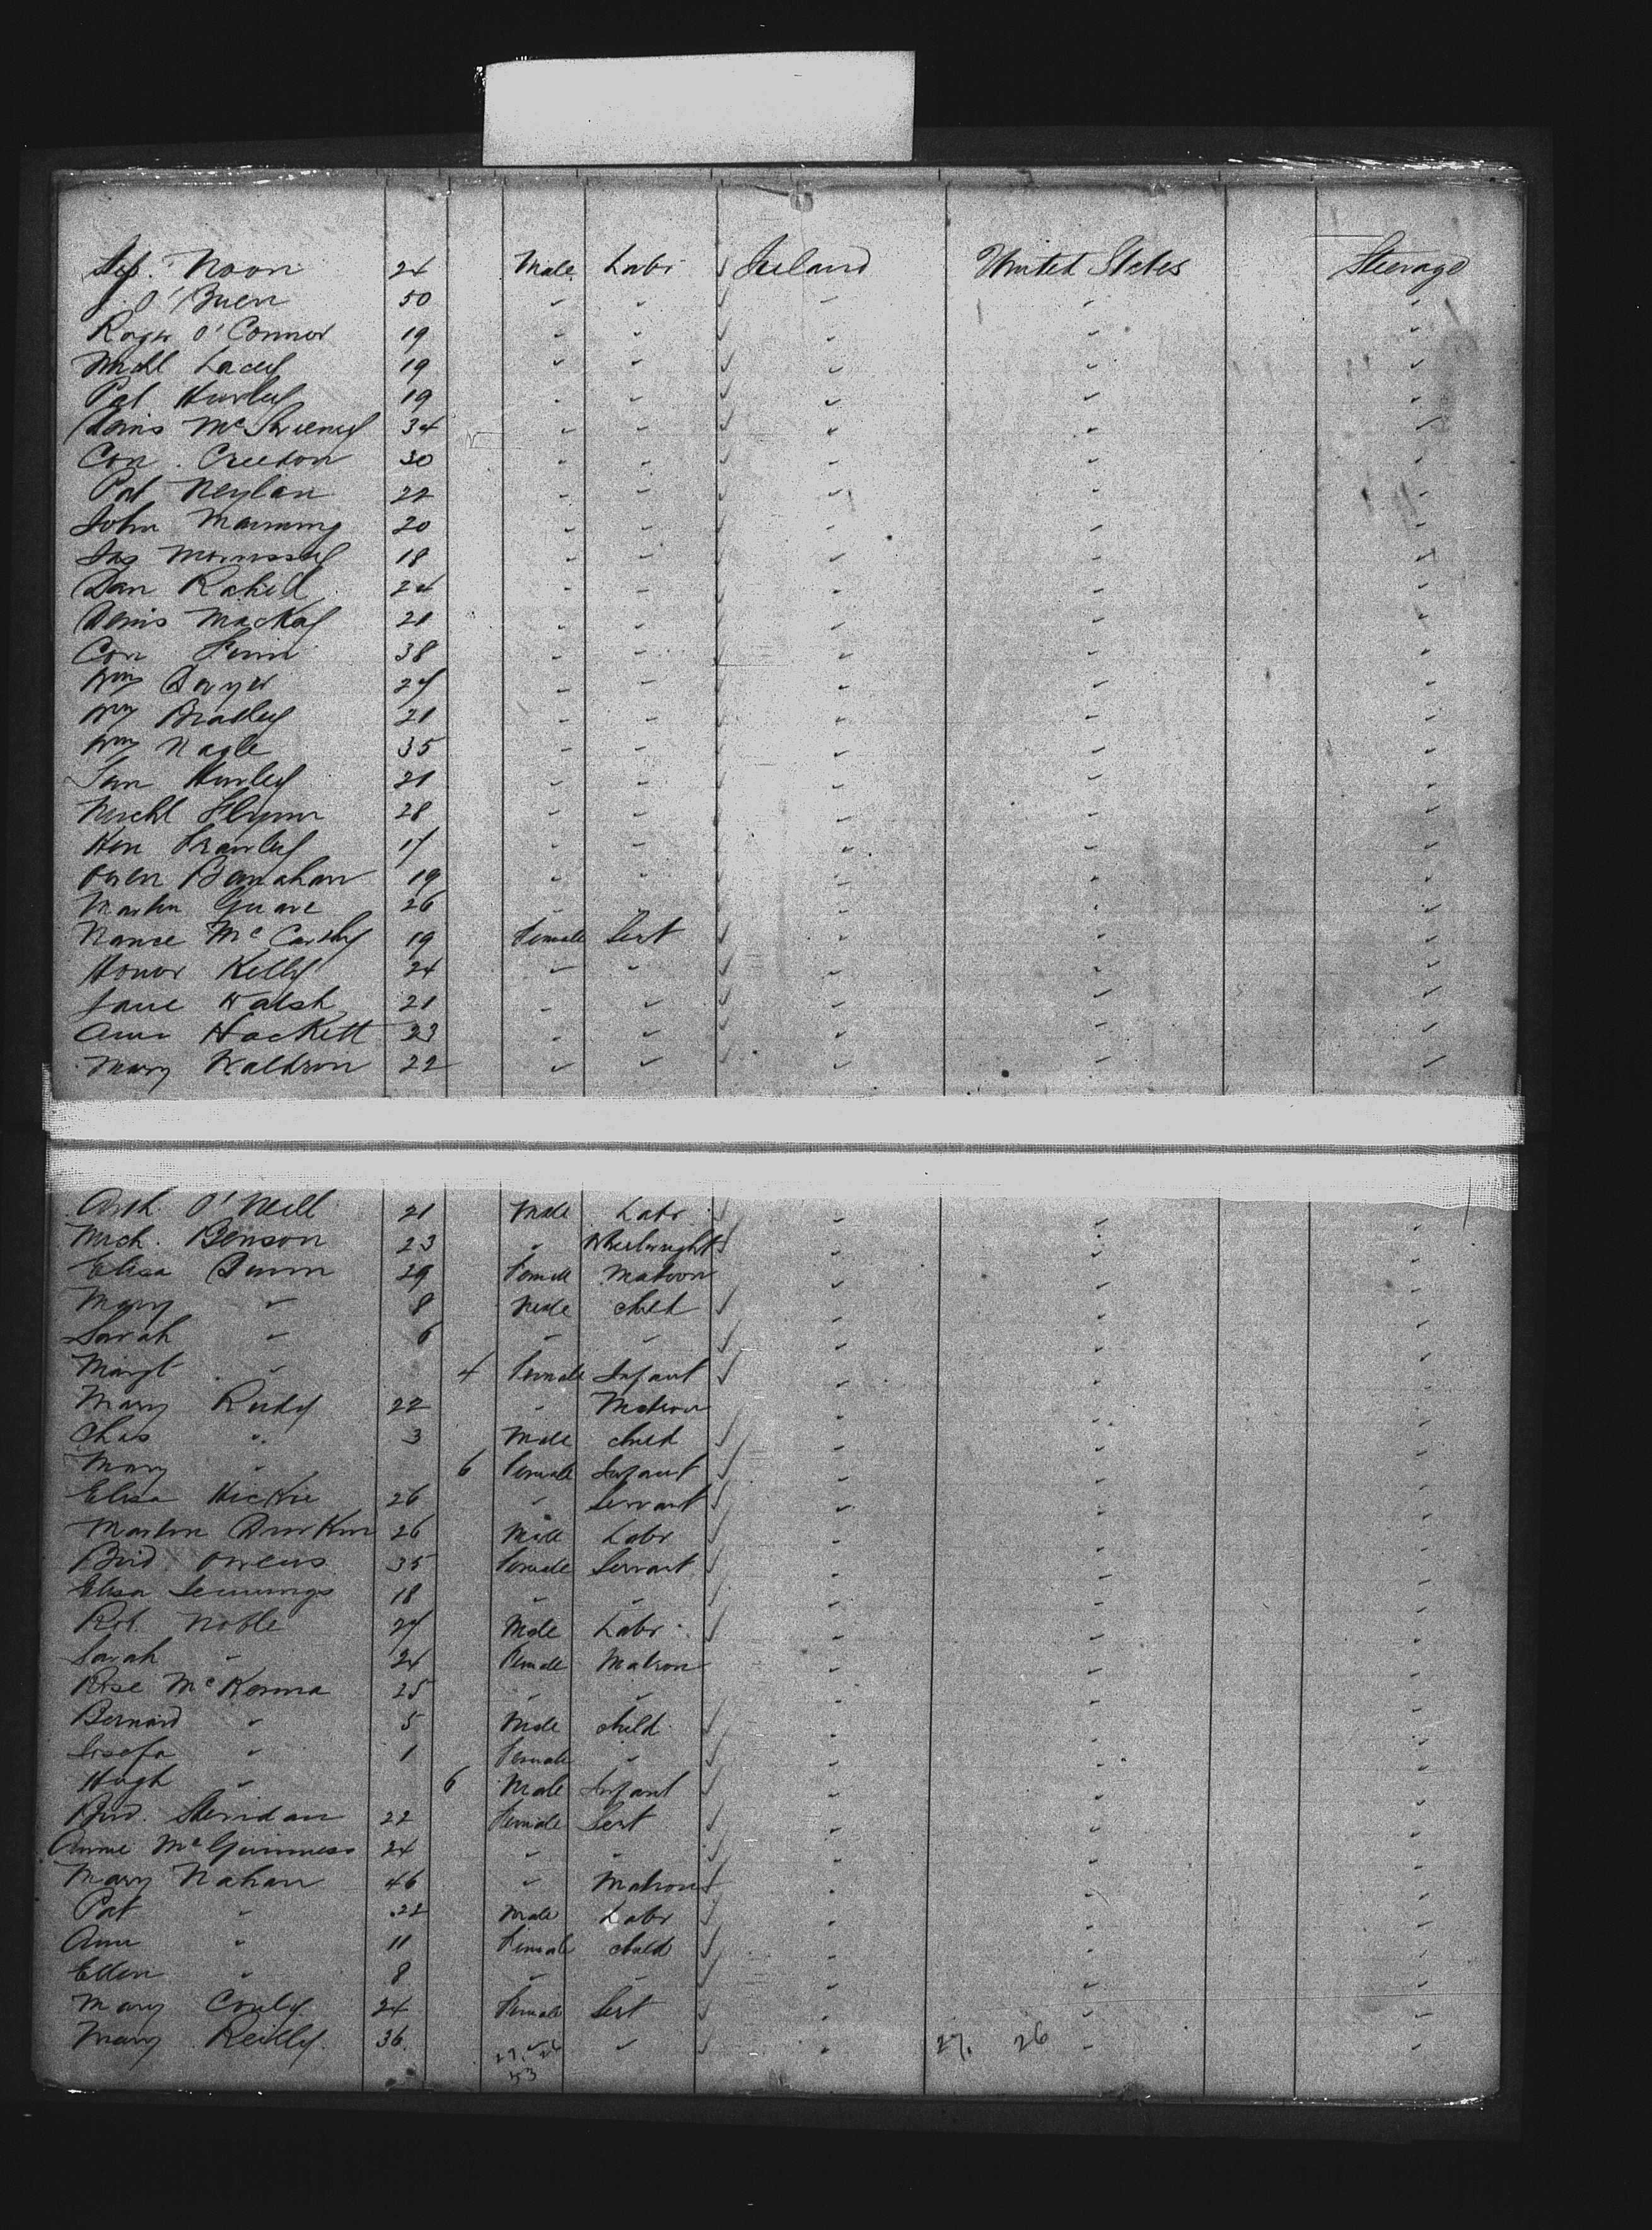 Jos. Noon 24 Male Labr Ireland United States Steerage
J. O'Brien 50 " " " " "
Roger O'Connor 19 " " " " "
Michl Lacey 19 " " " " "
Pat Hurley 19 " " " " "
Denis McSweeney 34 " " " " "
Con. Creedon 30 " " " " "
Pat Neylan 22 " " " " "
John Manning 20 " " " " "
Jas Morrissey 18 " " " " "
Dan Rahill 24 " " " " "
Denis Mackay 21 " " " " "
Con Finn 38 " " " " "
Wm Dwyer 27 " " " " "
Wm Bradley 21 " " " " "
Wm Nagle 35 " " " " "
Hurley 21 " " " " "
Michl Flynn 28 " " " " "
Frawley 17 " " " " "
Owen Banahan 19 " " " " "
Martin 26 " " " " "
Nance McCarthy 19 Female Sert " " "
Honor Kelly 24 " " " " "
Jane Walsh 21 " " " " "
Ann Hackett 23 " " " " "
Mary Waldron 22 " " " " "
Arth. O'Neill 21 Male Labr " " "
Mich. Benson 23 " Wheelwright " " "
Eliza Dunn 29 Female Matron " " "
Mary " 8 Male child " " "
Sarah " 6 " " " " "
Margt " 4 Female Infant " " "
Mary Rudy 22 " Matron " " "
Chas " 3 Male child " " "
Mary " 6 Female Infant " " "
Eliza Hickie 26 " Servant " " "
Martin Durkin 26 Male Labr " " "
Brid. Owens 35 Female Servant " " "
Eliza Jennings 18 " " " " "
Rob. Noble 27 Male Labr. " " "
Sarah " 24 Female Matron " " "
Rose McKenna 25 " " " " "
Bernard " 5 Male child " " "
" 1 Female " " " "
Hugh " 6 Male Infant " " "
Brid. Sheridan 22 Female Sert " " "
Annie McGuinness 24 " " " " "
Mary Nahan 46 " Matron " " "
Pat " 22 Male Labr " " "
Ann " 11 Female child " " "
Ellen " 8 " " " " "
Mary Conly 24 Female Sert " " "
Mary Reilly. 36. " " " 27. 26 " "
53